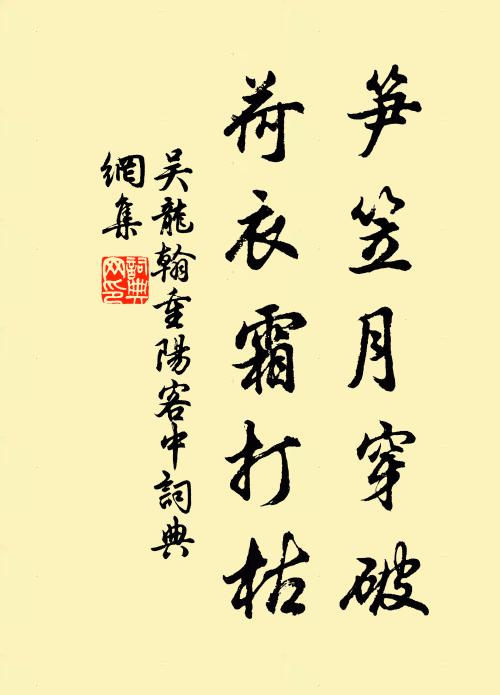 笋笠月穿破
荷衣霜打枯
吴龍翰重陽客中詞典
網集
詞典
网印